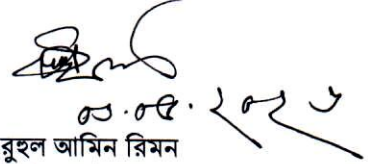 ০১.০৫.২০২৬
রুহুল আমিন রিমন